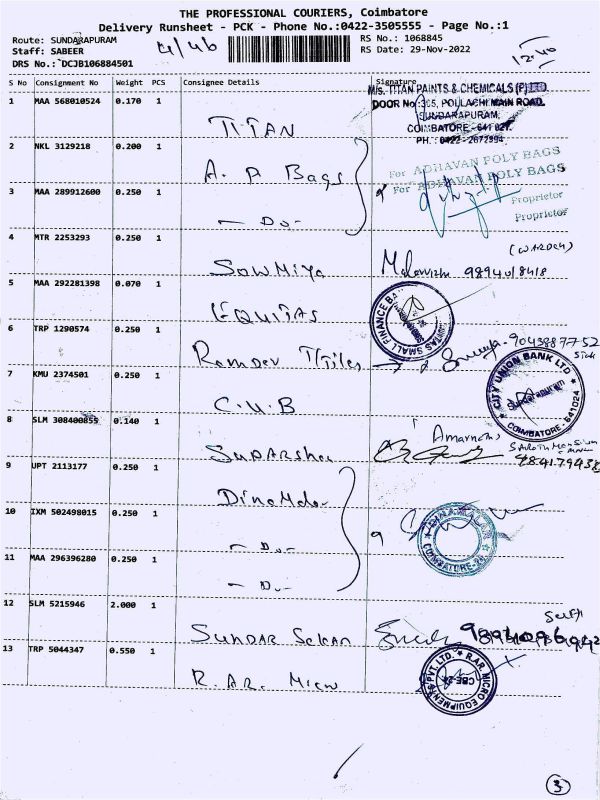 THE PROFESSIONAL COURIERS, Coimbatore
Delivery Runsheet - PCK - Phone No.:0422-3505555 - Page No.:1
Route: SUNDARAPURAM
Staff: SABEER
DRS No.: DCJB106884501
RS No.: 1068845
RS Date: 29-Nov-2022
12-40
S No Consignment No Weight PCS Consignee Details Signature
M/s. TITAN PAINTS & CHEMICALS (P) LTD
DOOR No: 305, POLLACHI MAIN ROAD,
SUNDARAPURAM,
COIMBATORE - 641 021.
PH.: 0422 - 2672894
1 MAA 568010524 0.170 1
TITAN
2 NKL 3129218 0.200 1
A. P Bags
For ADHAVAN POLY BAGS
For ADHAVAN POLY BAGS
Proprietor
Proprietor
3 MAA 289912600 0.250 1
- Do -
4 MTR 2253293 0.250 1
SOWMIYA
98940 18418
5 MAA 292281398 0.070 1
EQUITAS
EQUITAS SMALL FINANCE BANK
6 TRP 1290574 0.250 1
Ramdev Ttiles
9043887752
7 KMU 2374501 0.250 1
C.U.B
CITY UNION BANK LTD
SUNDARAPURAM
COIMBATORE - 641024
8 SLM 308400855 0.140 1
SUDARshan
Amarnath
9 UPT 2113177 0.250 1
DinaMalar
10 IXM 502498015 0.250 1
- Do -
DINAMALAR
COIMBATORE-24
11 MAA 296396280 0.250 1
- Do -
12 SLM 5215946 2.000 1
SUNDAR SEKAR
13 TRP 5044347 0.550 1
R. AR. Micro
R.AR. MICRO EQUIPMENTS PVT. LTD.
CBE-24
3